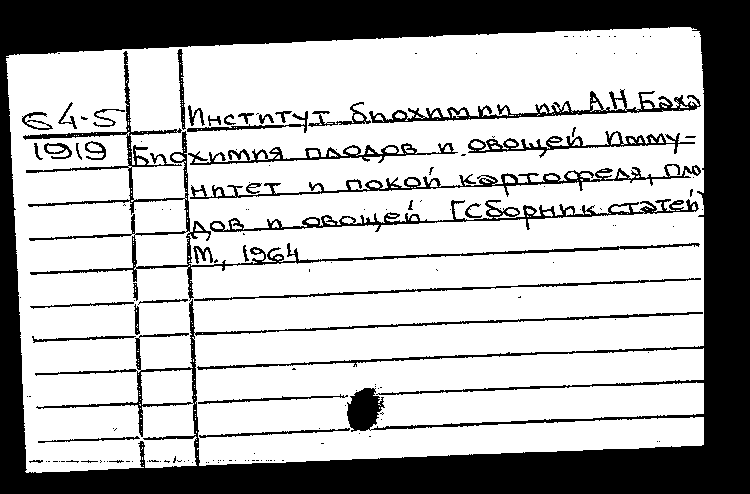 64-5 Институт биохимии им А.Н.Баха
1919 Биохимия плодов и овощей Имму=
нитет и покой картофеля, пло-
дов и овощей [Сборник статей]
М., 1964